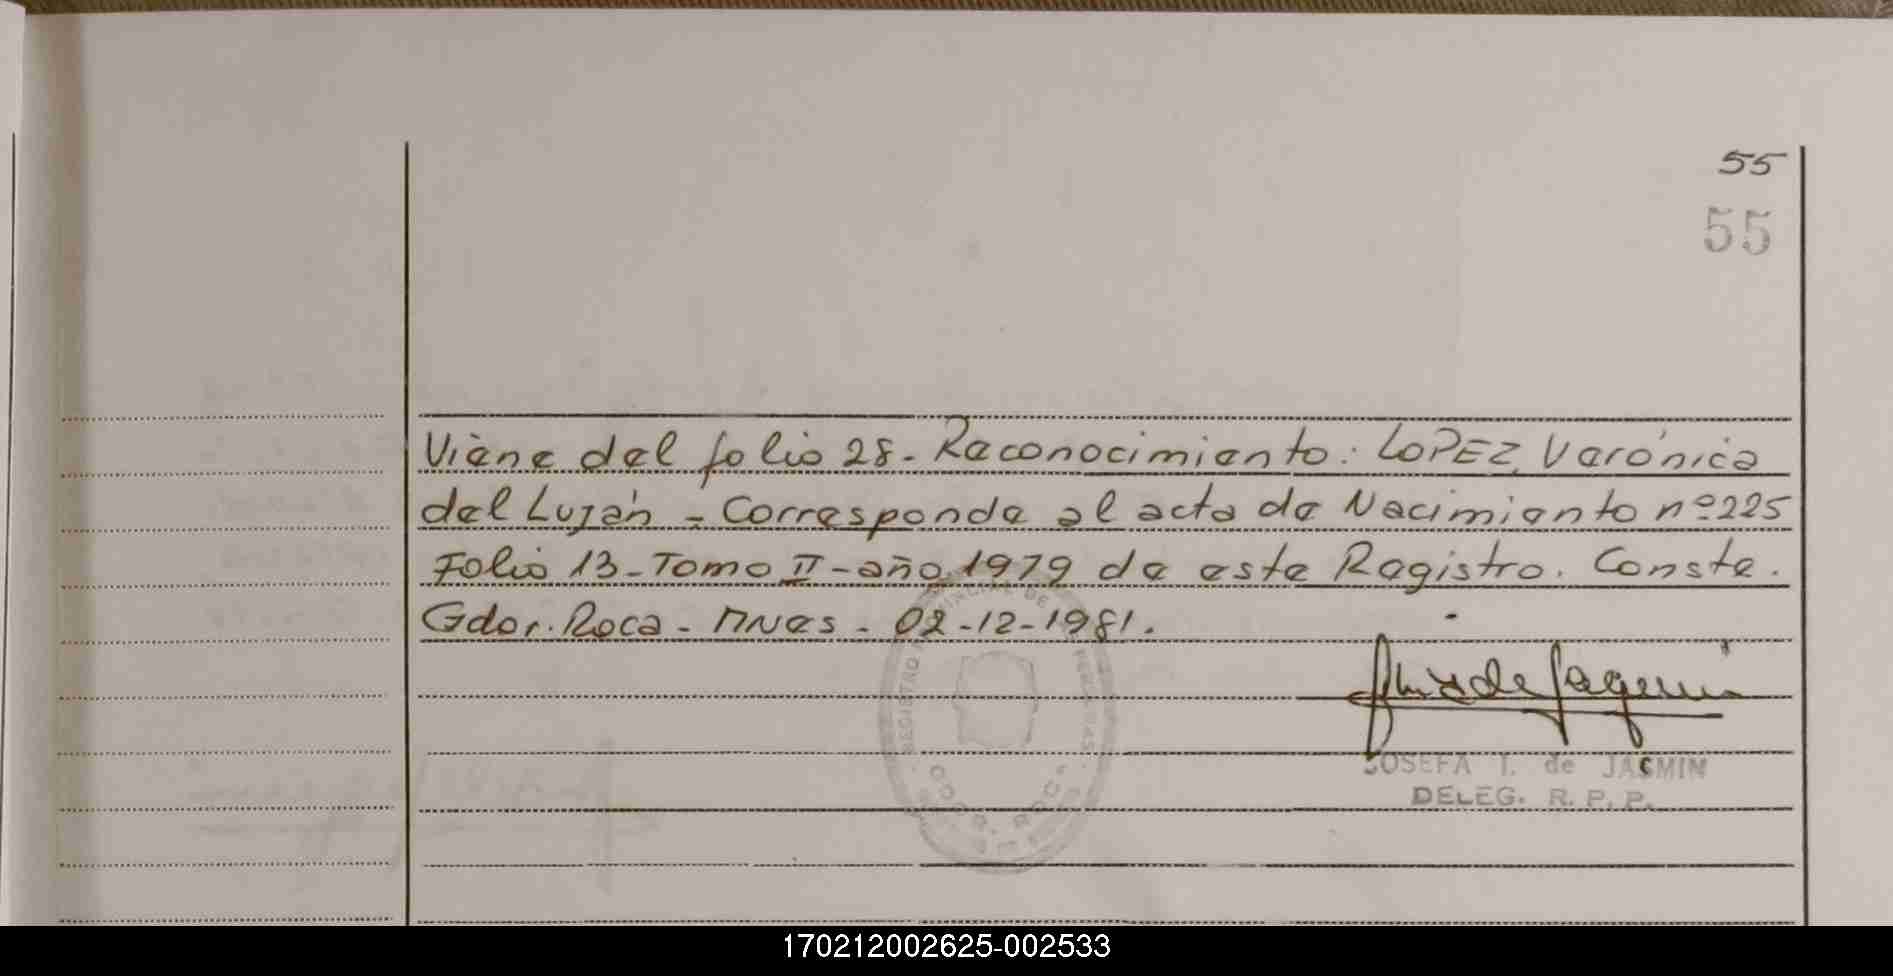 55
55
Viene del folio 28. Reconocimiento: LOPEZ, Verónica
del Luján - Corresponde al acta de Nacimiento nº 225
Folio 13 - Tomo II - año 1979 de este Registro. Conste.
Gdor. Roca - Mnes - 02-12-1981.
JOSEFA T. de JASMIN
DELEG. R. P. P.
170212002625-002533